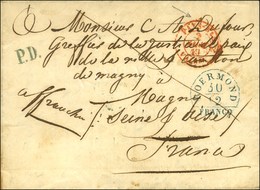 Monsieur C A Dufour,
Greffier de la justice de paix
de la ville & canton
de magny à
P.D.
affranchi
Magny
Seine & Oise
France
ROERMOND
30
12
FRANCO